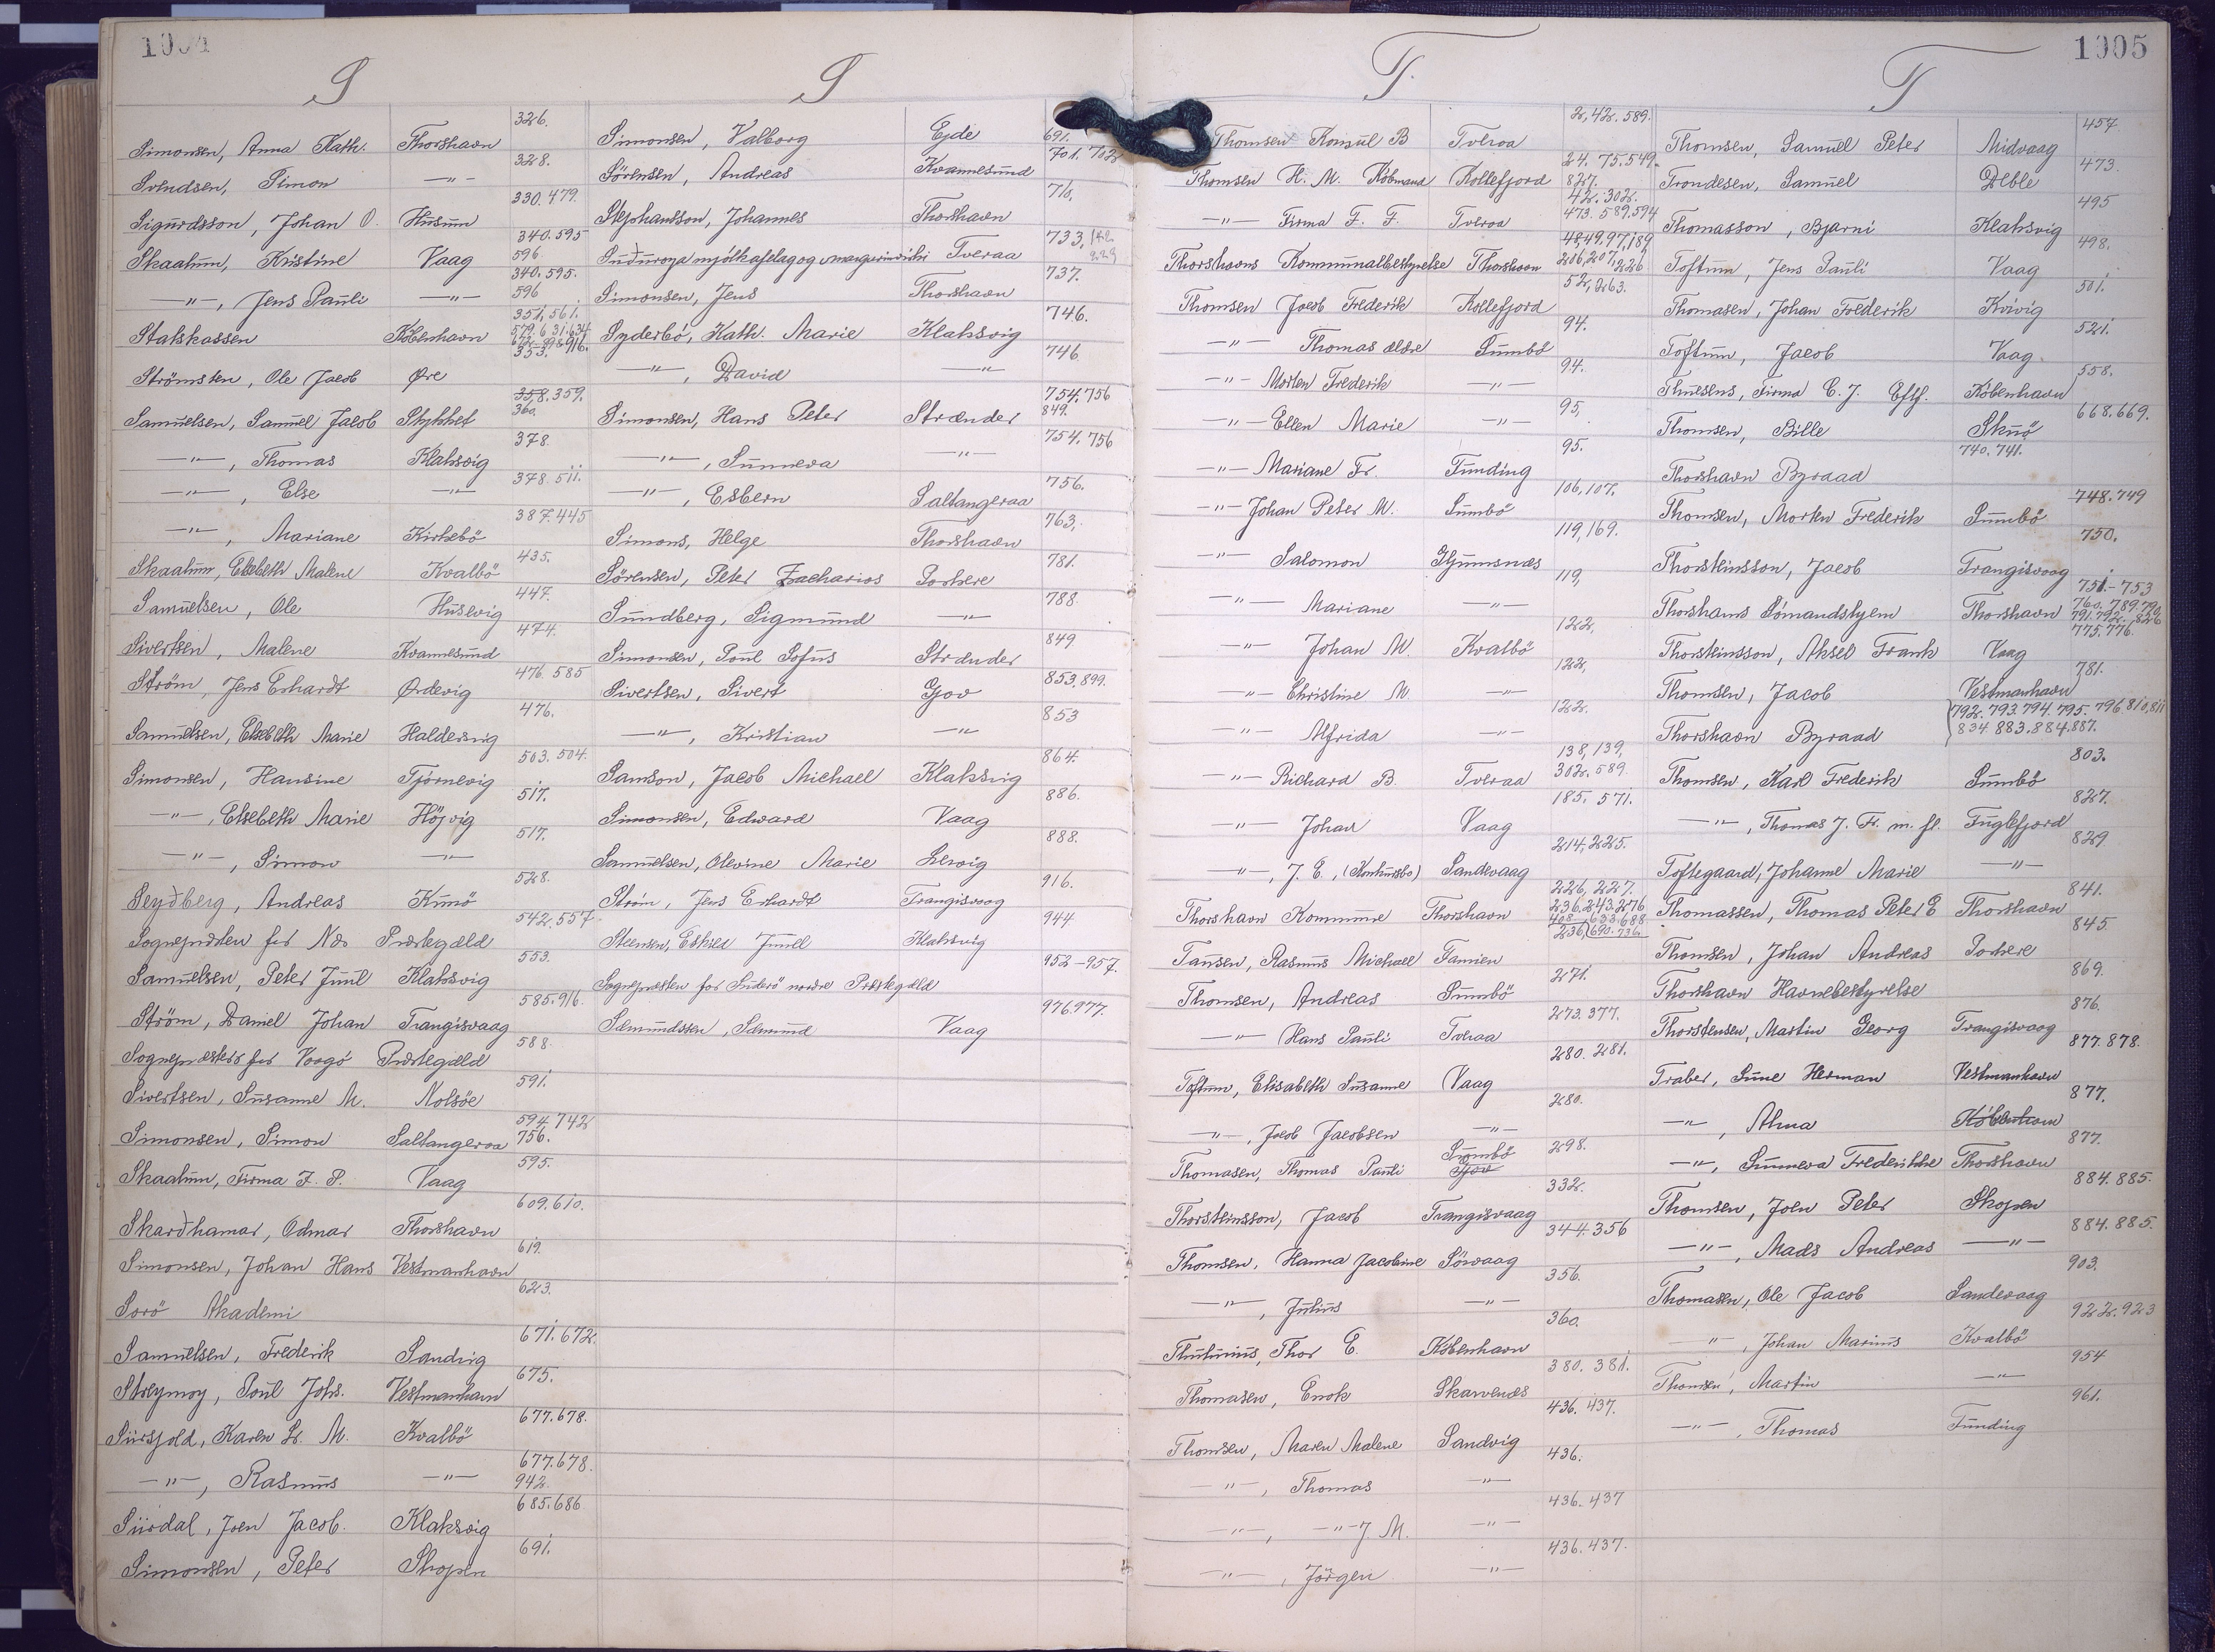 S
Simonsen, Anna Kath. Thorshavn 326.
Svendsen, Simon —"— 328.
Sigurdsson, Johan O. Husum 330. 479.
Skaalum, Kristine Vaag 340. 595 596
—"—, Jens Pauli —"— 340. 595. 596
Statskassen København 351. 561.
Strömsten, Ole Jacob Øre 353.
Samuelsen, Samuel Jacob Stykket 358. 359. 360.
—"—, Thomas Klaksvig 378.
—"—, Else —"— 378. 511.
—"—, Mariane Kirkebö 387. 445
Skaalum, Elsebeth Malene Kvalbö 435.
Samuelsen, Ole Husevig 447.
Sivertsen, Malene Kvannesund 474.
Ström, Jens Erhardt Ørdevig 476. 585
Samuelsen, Elsebeth Marie Haldersvig 476.
Simonsen, Hansine Tjörnevig 503. 504.
—"—, Elsebeth Marie Höjvig 517.
—"—, Simon —"— 517.
Seyðberg, Andreas Kunö 528.
Sognepræsten for Næs Præstegæld 542. 557
Samuelsen, Peter Juul Klaksvig 553.
Ström, Daniel Johan Trangisvaag 585. 916.
Sognepræsten for Vaagö Præstegæld 588.
Sivertsen, Susanne M. Nolsöe 591.
Simonsen, Simon Saltangeraa 594. 742 756.
Skaalum, Firma J. P. Vaag 595.
Skarðhamar, Odmar Thorshavn 609. 610.
Simonsen, Johan Hans Vestmanhavn 619.
Sorö Akademi 623.
Samuelsen, Frederik Sandvig 671. 672.
Streymoy, Poul Johs. Vestmanhavn 675.
Siirsjold, Karen L. M. Kvalbö 677. 678.
—"—, Rasmus —"— 677. 678. 942.
Siirdal, Joen Jacob. Klaksvig 685. 686
Simonsen, Peter Skopen 691.
S
Simonsen, Valborg Ejde 691.
Sörensen, Andreas Kvannesund 701. 702
Stephansson, Johannes Thorshavn 710.
Suðuroya mjólkafelag og margarinvirki Tveraa 733.
Simonsen, Jens Thorshavn 737.
Syderbö, Kath. Marie Klaksvig 746.
—"—, David —"— 746
Simonsen, Hans Peter Strænder 754. 756 849.
—"—, Sunneva —"— 754. 756
—"—, Esbern Saltangeraa 756.
Simons, Helge Thorshavn 763.
Sörensen, Peter Zacharias Porkere 781.
Sundberg, Sigmund —"— 788.
Simonsen, Poul Sofus Strænder 849
Sivertsen, Sivert Gjov 853. 899.
—"—, Kristian —"— 853
Samson, Jacob Michael Klaksvig 864.
Simonsen, Edward Vaag 886.
Samuelsen, Olevine Marie Lervig 888.
Ström, Jens Erhardt Trangisvaag 916.
Steensen, Eskild Juul Klaksvig 944
Sognepræsten for Suderö nordre Præstegæld 952-957.
Sæmundssen, Sæmund Vaag 976. 977.
1005
T.
Thomsen Konsul B Tveraa 2, 42. 589.
Thomsen H. M. Købmand Kollefjord 24. 75. 549. 827.
—"— Firma F. F. Tveraa 42. 302. 473. 589. 594
Thorshavns Kommunalbestyrelse Thorshavn 48, 49, 97, 189, 206, 207, 226
Thomsen Jacob Frederik Kollefjord 52, 263.
—"— Thomas ældre Sumbø 94.
—"— Morten Frederik —"— 94.
—"— Ellen Marie —"— 95,
—"— Mariane Fr. Funding 95.
—"— Johan Peter M. Sumbö 106, 107.
—"— Salomon Glyumsnæs 119, 169.
—"— Mariane —"— 119,
—"— Johan M. Kvalbö 122,
—"— Christine M. —"— 122,
—"— Alfrida —"— 122.
—"— Richard B. Tveraa 138, 139, 302. 589.
—"— Johan Vaag 185. 571.
—"—, J. E., Sandevaag 214, 225.
Thorshavn Kommune Thorshavn 226, 227. 236, 243, 276
Tausen, Rasmus Michael Famien 236. 690. 736.
Thomsen, Andreas Sumbö 271.
—"— Hans Pauli Tveraa 273. 377.
Toftum, Elisabeth Susanne Vaag 280. 281.
—"—, Jacob Jacobsen —"— 280.
Thomasen, Thomas Pauli Sumbö Gjov 298.
Thorsteinsson, Jacob Trangisvaag 332.
Thomsen, Hanna Jacobine Sörvaag 344. 356
—"—, Julius —"— 356.
Thulinius, Thor E. København 360.
Thomasen, Enok Skarvenæs 380. 381.
Thomsen, Maren Malene Sandvig 436. 437.
—"—, Thomas —"— 436.
—"—, —"— J. M. —"— 436. 437
—"—, Jörgen —"— 436. 437.
T
Thomsen, Samuel Peter Midvaag 457
Trondesen, Samuel Deble 473.
Thomasson, Bjarni Klaksvig 495
Toftum, Jens Pauli Vaag 498.
Thomasen, Johan Frederik Kvivig 501.
Toftum, Jacob Vaag. 521.
Thuesens, Firma C. J. Eftf. København 558.
Thomsen, Bille Skuö 668. 669.
Thorshavn Byraad 740. 741.
Thomsen, Morten Frederik Sumbö 748. 749
Thorsteinsson, Jacob Trangisvaag 750.
Thorshavns Sömandshjem Thorshavn 751-753 760. 789. 790. 791. 792. 826
Thorsteinsson, Aksel Frank Vaag 775. 776.
Thomsen, Jacob Vestmanhavn 781.
Thorshavn Byraad 792. 793. 794. 795. 796. 810, 811 834 883. 884. 887.
Thomsen, Karl Frederik Sumbö 803.
—"—, Thomas J. Fr. m. fl. Fuglefjord 827.
Toftegaard, Johanne Marie —"— 829
Thomassen, Thomas Peter E Thorshavn 841.
Thomsen, Johan Andreas Porkere 845.
Thorshavn Havnebestyrelse 869.
Thorstensen, Martin Georg Trangisvaag 876.
Traber, Sune Herman Vestmanhavn 877. 878.
—"—, Alma København 877.
—"—, Sunneva Frederikke Thorshavn 877.
Thomsen, Joen Peter Skopen 884. 885.
—"—, Mads Andreas —"— 884. 885.
Thomasen, Ole Jacob Sandevaag 903.
—"—, Johan Marius Kvalbö 922. 923
Thomsen, Martin —"— 954
—"—, Thomas Funding 961.